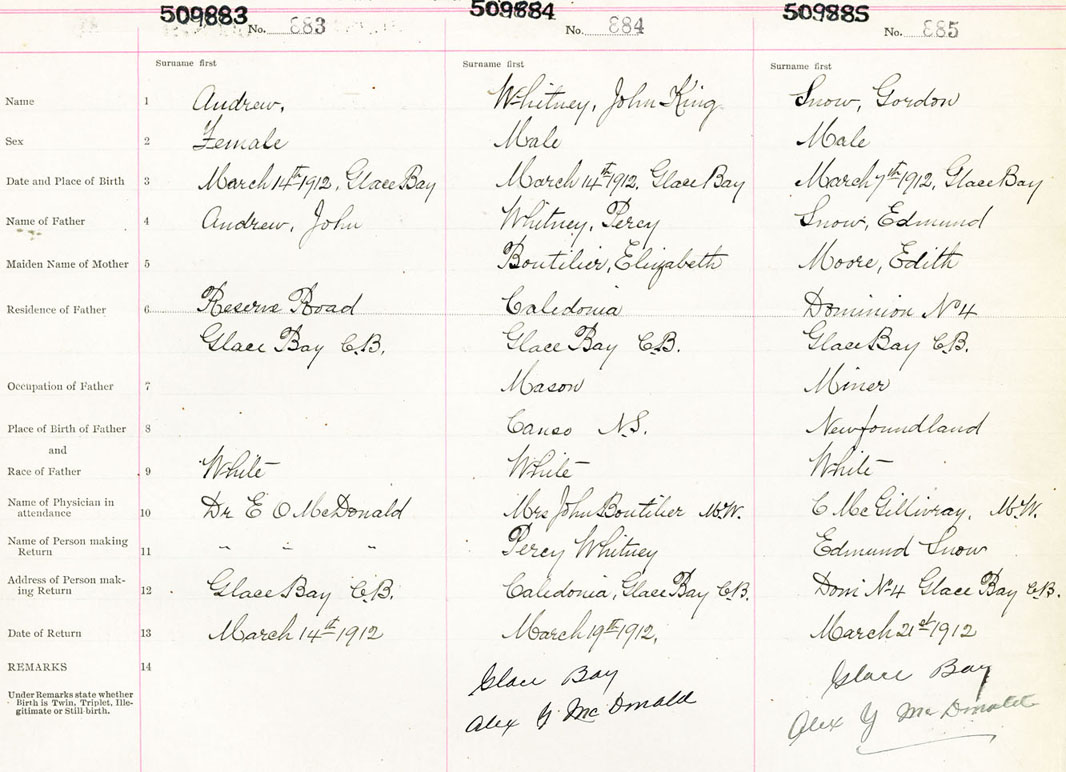 509883 509884 509885
No. 883 No. 884 No. 885
Surname first Surname first Surname first
Name 1 Andrew, Whitney, John King Snow, Gordon
Sex 2 Female Male Male
Date and Place of Birth 3 March 14th 1912, Glace Bay March 14th 1912, Glace Bay March 7th 1912, Glace Bay
Name of Father 4 Andrew, John Whitney, Percy Snow, Edmund
Maiden Name of Mother 5 Boutilier, Elizabeth Moore, Edith
Residence of Father 6 Reserve Road Caledonia Dominion No 4
Glace Bay C.B. Glace Bay C.B. Glace Bay C.B.
Occupation of Father 7 Mason Miner
Place of Birth of Father 8 Canso N.S. Newfoundland
and
Race of Father 9 White White White
Name of Physician in
attendance 10 Dr E O McDonald Mrs John Boutilier M.W. C McGillivray, M.W.
Name of Person making
Return 11 " " " Percy Whitney Edmund Snow
Address of Person mak-
ing Return 12 Glace Bay C.B. Caledonia, Glace Bay C.B. Dom No 4 Glace Bay C.B.
Date of Return 13 March 14th 1912 March 19th 1912, March 21st 1912
REMARKS 14 Glace Bay Glace Bay
Under Remarks state whether
Birth is Twin, Triplet, Ille-
gitimate or Still-birth.
Alex Y McDonald Alex Y McDonald